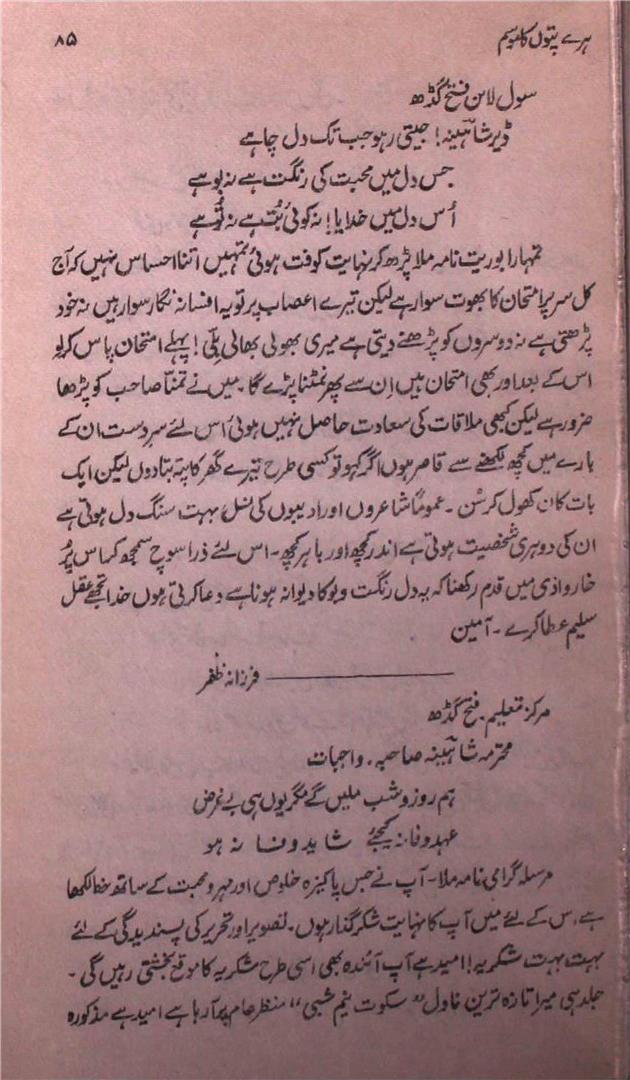 ہرے پتوں کا موسم ۸۵
سول لائن فتح گڈھ
ڈیر شاہینہ! جیتی رہو جب تک دل چاہے
جس دل میں محبت کی رنگت ہے نہ بو ہے
اُس دل میں خدایا! نہ کوئی بُت ہے نہ تُو ہے
تمہارا بوریت نامہ ملا پڑھ کر نہایت کوفت ہوئی تمہیں اتنا احساس نہیں کہ آج
کل سر پر امتحان کا بھوت سوار ہے لیکن تیرے اعصاب پر تو یہ افسانہ نگار سوار ہیں نہ خود
پڑھتی ہے نہ دوسروں کو پڑھنے دیتی ہے میری بھولی بھالی بلّی! پہلے امتحان پاس کر لو
اس کے بعد اور بھی امتحان ہیں اِن سے پھر نمٹنا پڑے گا۔ میں نے تمنّا صاحب کو پڑھا
ضرور ہے لیکن کبھی ملاقات کی سعادت حاصل نہیں ہوئی اس لئے سرِدست ان کے
بارے میں کچھ لکھنے سے قاصر ہوں اگر کہو تو کسی طرح تیرے گھر کا پتہ بتا دوں لیکن ایک
بات کان کھول کر سُن ۔ عموماً شاعروں اور ادیبوں کی نسل بہت سنگ دل ہوتی ہے
ان کی دوہری شخصیت ہوتی ہے اندر کچھ اور باہر کچھ ۔ اس لئے ذرا سوچ سمجھ کر اس پُر
خار وادی میں قدم رکھنا کہ یہ دل رنگت و بو کا دیوانہ ہونا ہے دعا کرتی ہوں خدا تجھے عقل
سلیم عطا کرے ۔ آمین
فرزانہ ظفر
مرکز تعلیم ۔ فتح گڈھ
محترمہ شاہینہ صاحبہ ۔ واجبات
ہم روز و شب ملیں گے مگر یوں ہی بے غرض
عہد وفا نہ کیجئے شاید وفا نہ ہو
مرسلہ گرامی نامہ ملا ۔ آپ نے جس پاکیزہ خلوص اور مہر و محبت کے ساتھ خط لکھا
ہے، اس کے لئے میں آپ کا نہایت شکر گذار ہوں۔ تصویر اور تحریر کی پسندیدگی کے لئے
بہت بہت شکریہ! امید ہے آپ آئندہ بھی اسی طرح شکریہ کا موقع بخشتی رہیں گی ۔
جلد ہی میرا تازہ ترین ناول "سکوت نیم شبی" منظر عام پر آ رہا ہے امید ہے مذکورہ